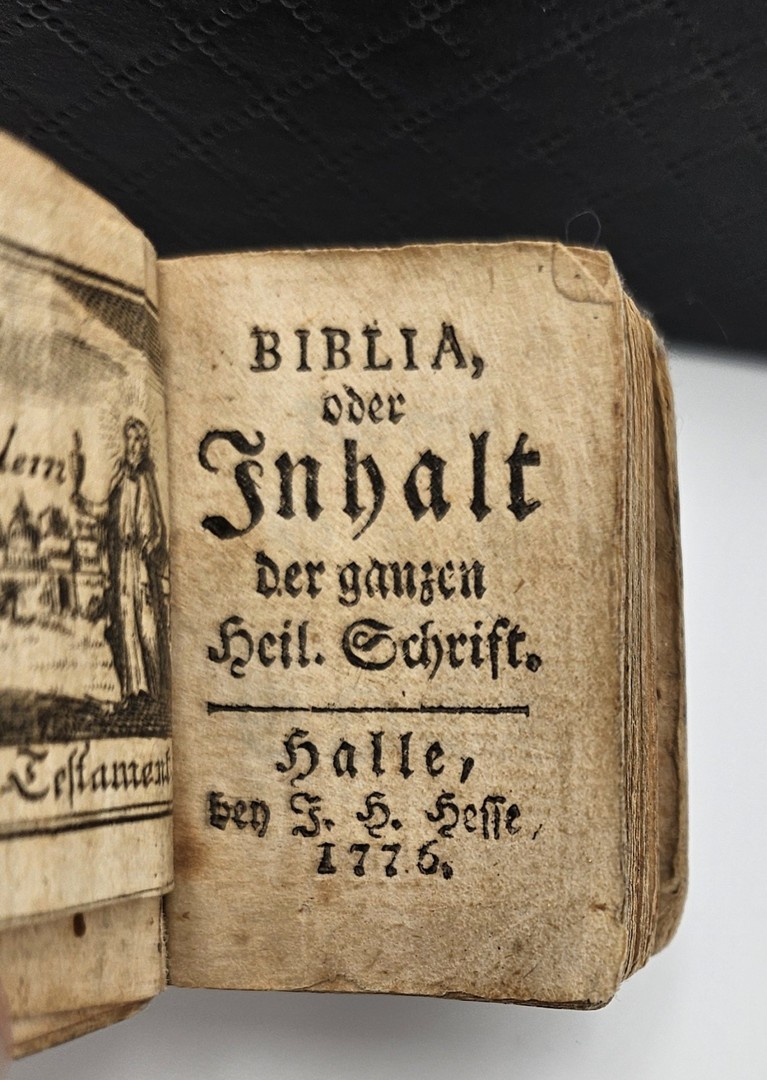 lem
Testament
BIBLIA,
oder
Inhalt
der ganzen
Heil. Schrift.
Halle,
bey J. H. Hesse,
1776.